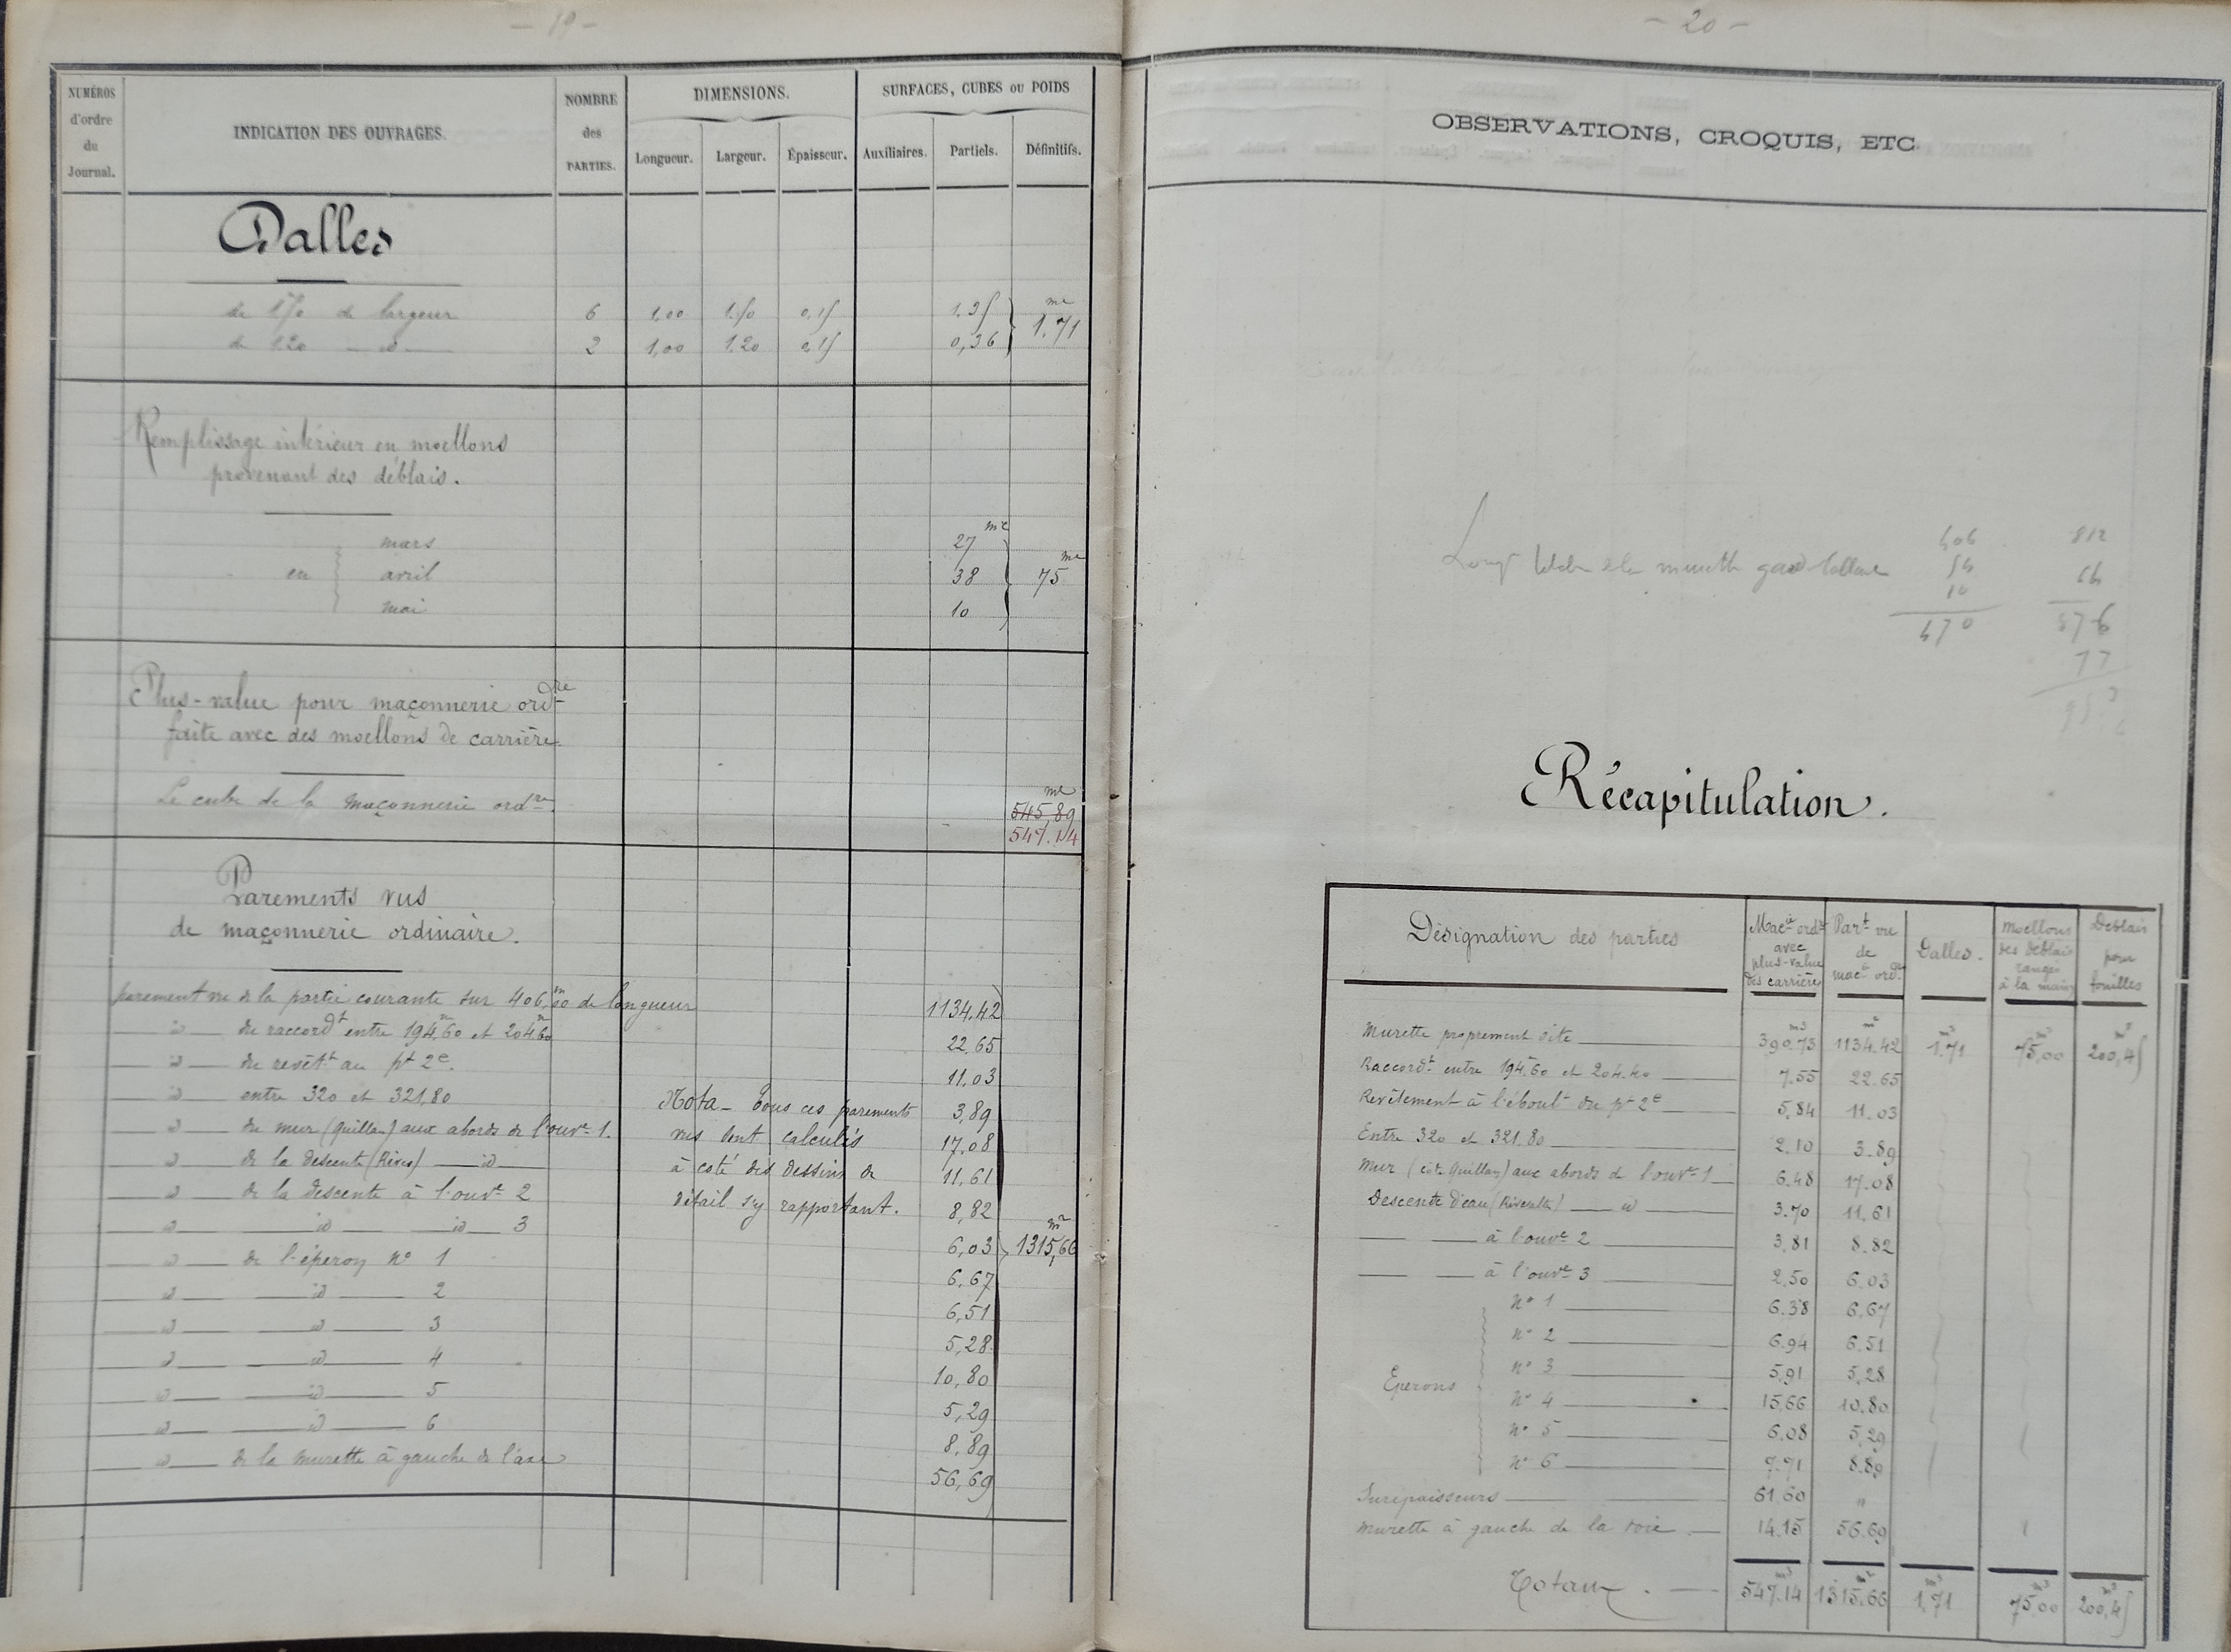 — 19 —
NUMÉROS d'ordre du Journal.
INDICATION DES OUVRAGES.
NOMBRE des PARTIES.
DIMENSIONS.
Longueur. Largeur. Épaisseur.
SURFACES, CUBES OU POIDS
Auxiliaires. Partiels. Définitifs.
Dalles
de 1.50 de largeur 6 1,00 1.50 0,15 1.35 mc
de 1.20 — d — 2 1,00 1.20 0,15 0,36 1.71
Remplissage intérieur en moellons
provenant des déblais.
mars 27 mc
en avril 38 75 mc
mai 10
Plus-value pour maçonnerie ord.re
faite avec des moellons de carrière.
mc
Le cube de la maçonnerie ord.re 545,89
547.14
Parements vus
de maçonnerie ordinaire.
parement vu de la partie courante sur 406.m00 de longueur 1134.42
— d — du raccord.t entre 194.m60 et 204.m60 22.65
— d — du revêt.t au pt 2e. 11.03
— d — entre 320 et 321.80 Nota — Tous ces parements 3,89
— d — du mur (Quillan) aux abords de l'ouv.e 1. vus sont calculés 17,08
— d — de la descente (Rives) — id — à coté des dessins de 11,61
— d — de la descente à l'ouv.e 2 détail s'y rapportant. 8,82 m2
— d — id — id — 3 6,03 1315,66
— d — de l'éperon n° 1 6.67
— d — id — 2 6,51
— d — d — 3 5,28
— d — d — 4 10,80
— d — id — 5 5,29
— d — d — 6 8.89
— d — de la murette à gauche de l'axe 56,69
— 20 —
OBSERVATIONS, CROQUIS, ETC
406 812
54 64
10
470 876
77
Récapitulation.
Désignation des parties
Mac.ie ord.re avec plus-value des carrières
Par.t vu de mac.ie ord.re
Dalles.
moellons des déblais rangés à la main
Déblais pour fouilles
m3 m2 m3 m3 m3
Murette proprement dite 390.73 1134.42 1.71 75,00 200,45
Raccord.t entre 194.60 et 204.60 7.55 22.65
Revêtement à l'éboul.t du pt 2e 5,84 11.03
Entre 320 et 321.80 2.10 3.89
Mur (côté Quillan) aux abords de l'ouv.e 1 6.48 17.08
Descente d'eau (Rivesaltes) — id — 3.70 11.61
— — à l'ouv.e 2 3,81 8.82
— — à l'ouv.e 3 2,50 6.03
n° 1 6.38 6.67
n° 2 6.94 6.51
n° 3 5,91 5,28
Eperons n° 4 15,66 10.80
n° 5 6.08 5,29
n° 6 7.71 8.89
Surépaisseurs 61,60 "
Murette à gauche de la voie. 14.15 56.69
m3 m2 m3 m3 m3
Totaux. 547.14 1315.66 1,71 75,00 200,45